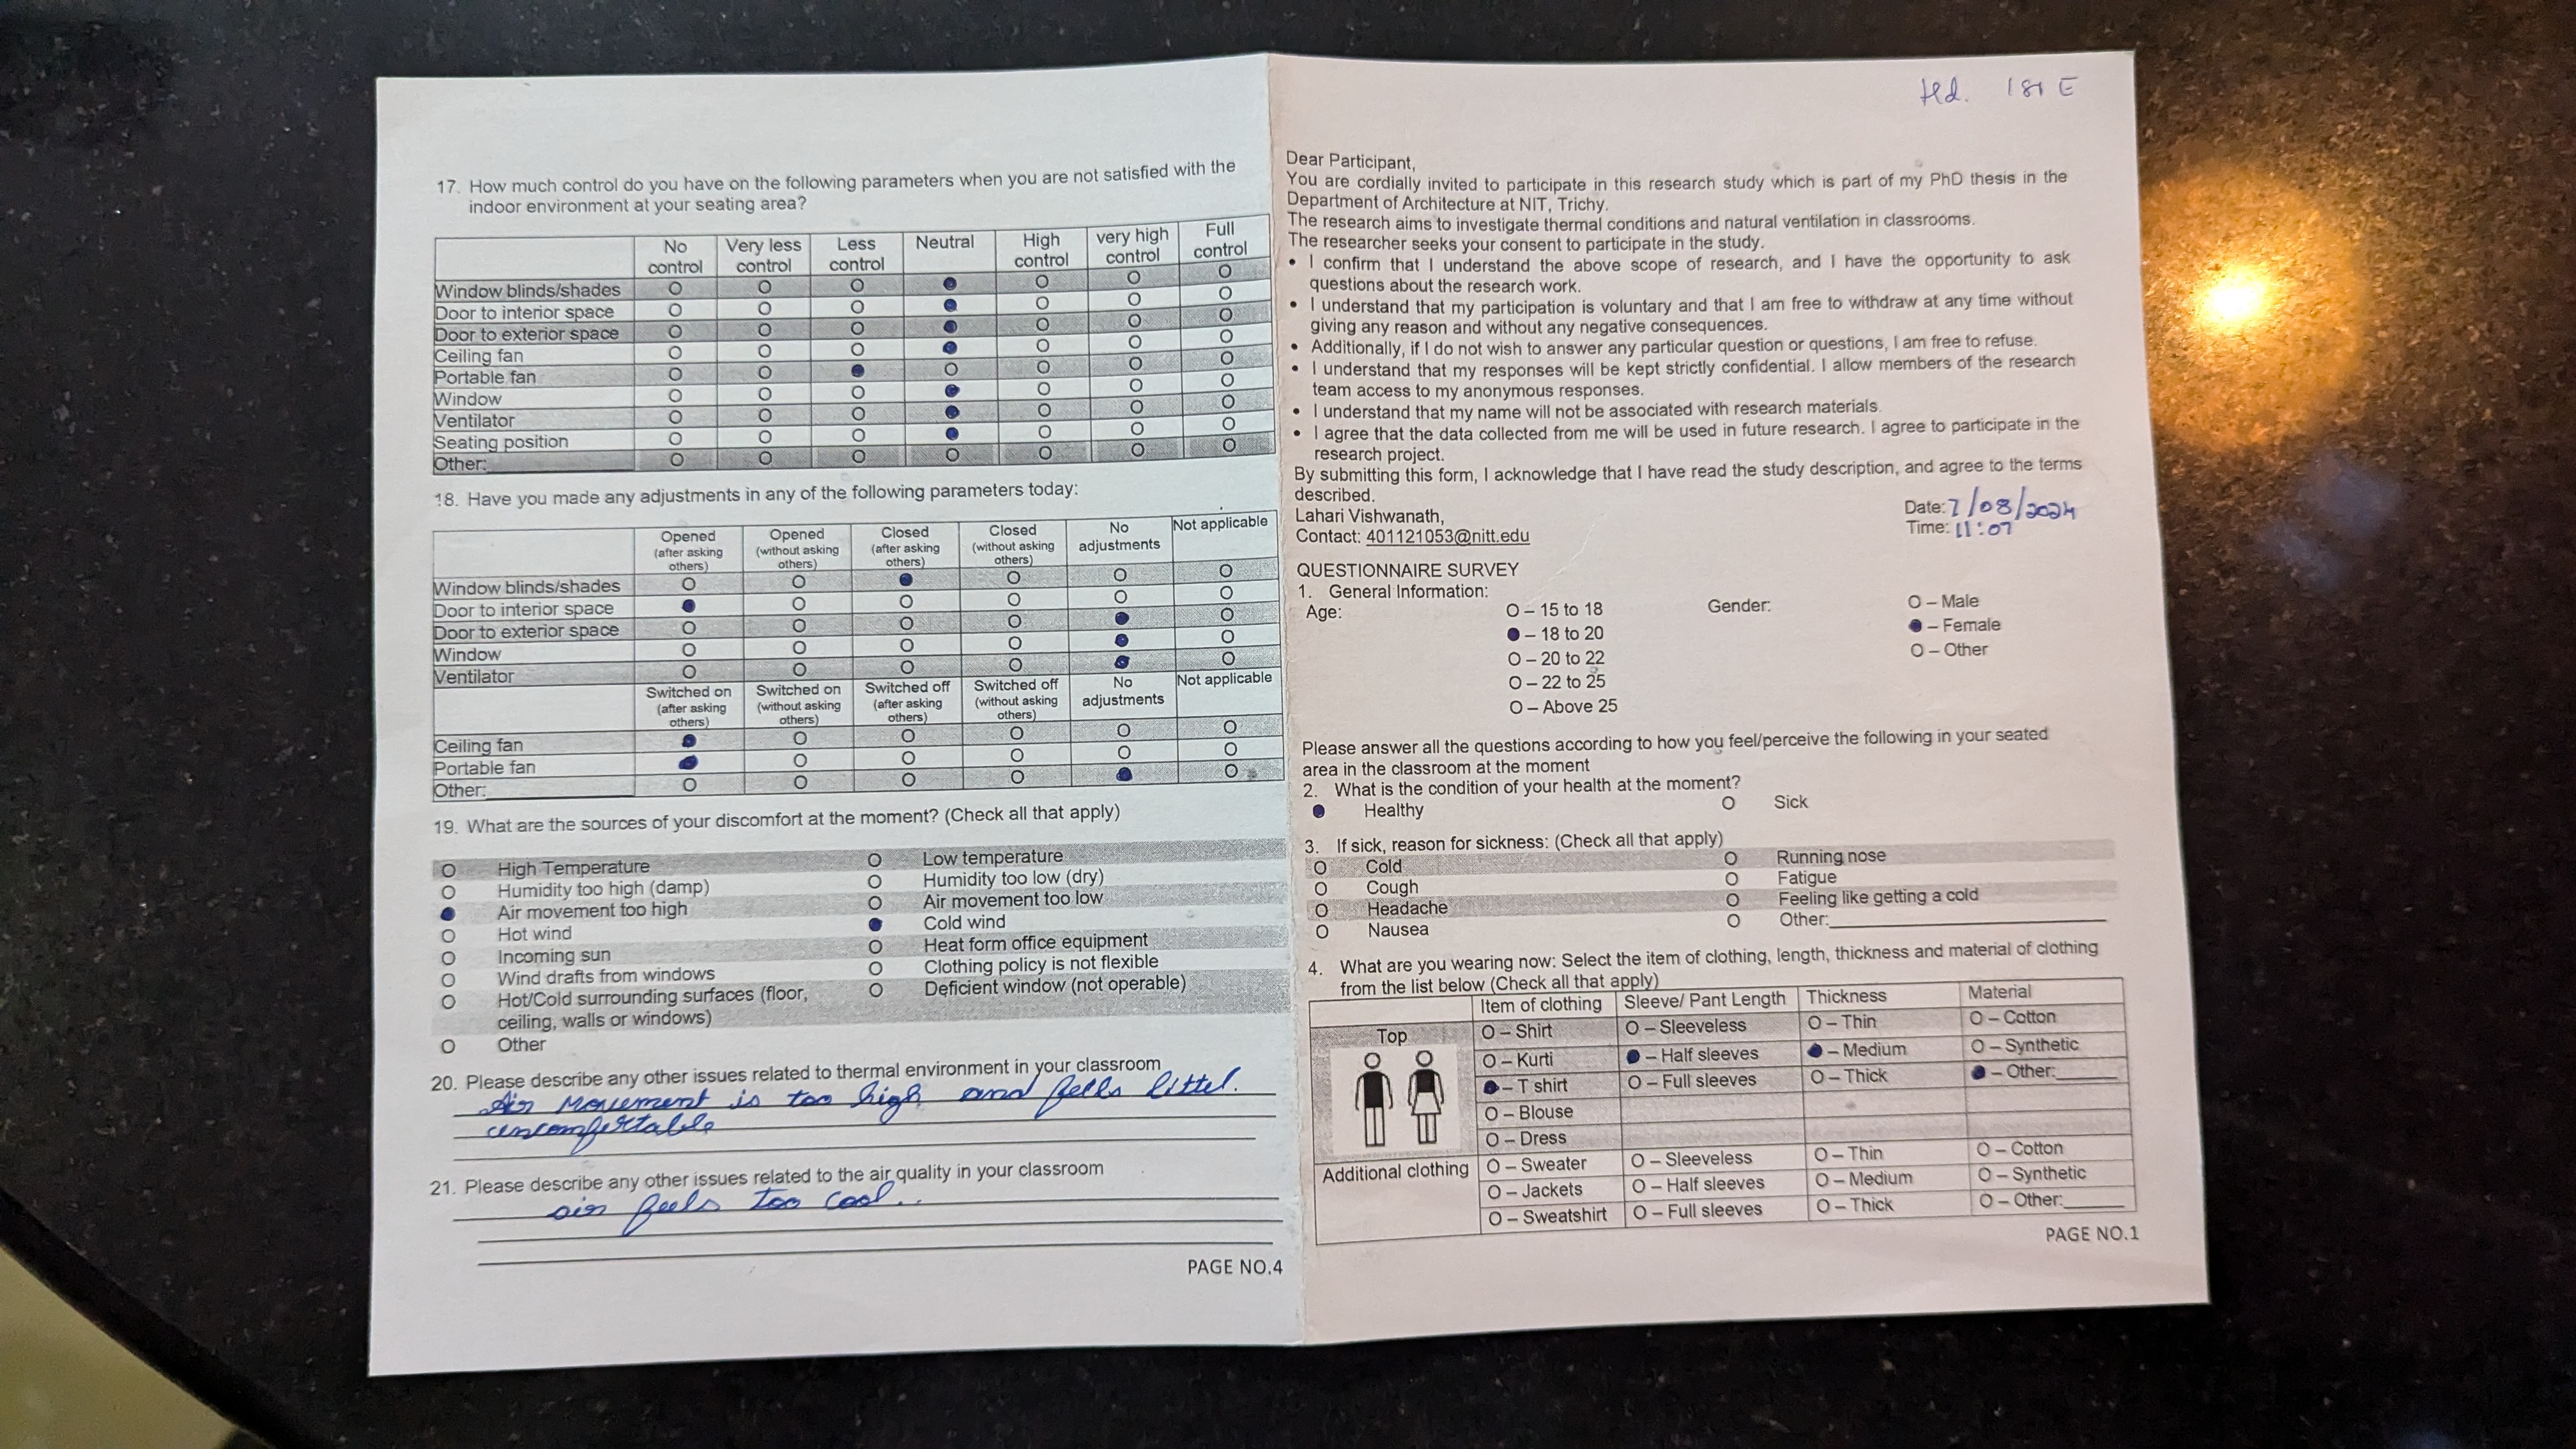 17. How much control do you have on the following parameters when you are not satisfied with the
indoor environment at your seating area?
No control | Very less control | Less control | Neutral | High control | very high control | Full control
Window blinds/shades O O O ● O O O
Door to interior space O O O ● O O O
Door to exterior space O O O ● O O O
Ceiling fan O O O ● O O O
Portable fan O O ● O O O O
Window O O O ● O O O
Ventilator O O O ● O O O
Seating position O O O ● O O O
Other:________ O O O O O O O
18. Have you made any adjustments in any of the following parameters today:
Opened (after asking others) | Opened (without asking others) | Closed (after asking others) | Closed (without asking others) | No adjustments | Not applicable
Window blinds/shades O O ● O O O
Door to interior space ● O O O O O
Door to exterior space O O O O ● O
Window O O O O ● O
Ventilator O O O O ● O
Switched on (after asking others) | Switched on (without asking others) | Switched off (after asking others) | Switched off (without asking others) | No adjustments | Not applicable
Ceiling fan ● O O O O O
Portable fan ● O O O O O
Other:________ O O O O ● O
19. What are the sources of your discomfort at the moment? (Check all that apply)
O High Temperature O Low temperature
O Humidity too high (damp) O Humidity too low (dry)
● Air movement too high O Air movement too low
O Hot wind ● Cold wind
O Incoming sun O Heat form office equipment
O Wind drafts from windows O Clothing policy is not flexible
O Hot/Cold surrounding surfaces (floor, O Deficient window (not operable)
ceiling, walls or windows)
O Other
20. Please describe any other issues related to thermal environment in your classroom
Air Movement is too high and fells littel.
uncomfertable
21. Please describe any other issues related to the air quality in your classroom
air feels too cool..
PAGE NO.4
181 E
Dear Participant,
You are cordially invited to participate in this research study which is part of my PhD thesis in the
Department of Architecture at NIT, Trichy.
The research aims to investigate thermal conditions and natural ventilation in classrooms.
The researcher seeks your consent to participate in the study.
• I confirm that I understand the above scope of research, and I have the opportunity to ask
questions about the research work.
• I understand that my participation is voluntary and that I am free to withdraw at any time without
giving any reason and without any negative consequences.
• Additionally, if I do not wish to answer any particular question or questions, I am free to refuse.
• I understand that my responses will be kept strictly confidential. I allow members of the research
team access to my anonymous responses.
• I understand that my name will not be associated with research materials.
• I agree that the data collected from me will be used in future research. I agree to participate in the
research project.
By submitting this form, I acknowledge that I have read the study description, and agree to the terms
described.
Lahari Vishwanath,
Contact: 401121053@nitt.edu
Date: 7/08/2024
Time: 11:07
QUESTIONNAIRE SURVEY
1. General Information:
Age: O – 15 to 18 Gender: O – Male
● – 18 to 20 ● – Female
O – 20 to 22 O – Other
O – 22 to 25
O – Above 25
Please answer all the questions according to how you feel/perceive the following in your seated
area in the classroom at the moment
2. What is the condition of your health at the moment?
● Healthy O Sick
3. If sick, reason for sickness: (Check all that apply)
O Cold O Running nose
O Cough O Fatigue
O Headache O Feeling like getting a cold
O Nausea O Other:________
4. What are you wearing now: Select the item of clothing, length, thickness and material of clothing
from the list below (Check all that apply)
Item of clothing | Sleeve/ Pant Length | Thickness | Material
Top O – Shirt O – Sleeveless O – Thin O – Cotton
O – Kurti ● – Half sleeves ● – Medium O – Synthetic
● – T shirt O – Full sleeves O – Thick ● – Other:______
O – Blouse
O – Dress
Additional clothing O – Sweater O – Sleeveless O – Thin O – Cotton
O – Jackets O – Half sleeves O – Medium O – Synthetic
O – Sweatshirt O – Full sleeves O – Thick O – Other:______
PAGE NO.1